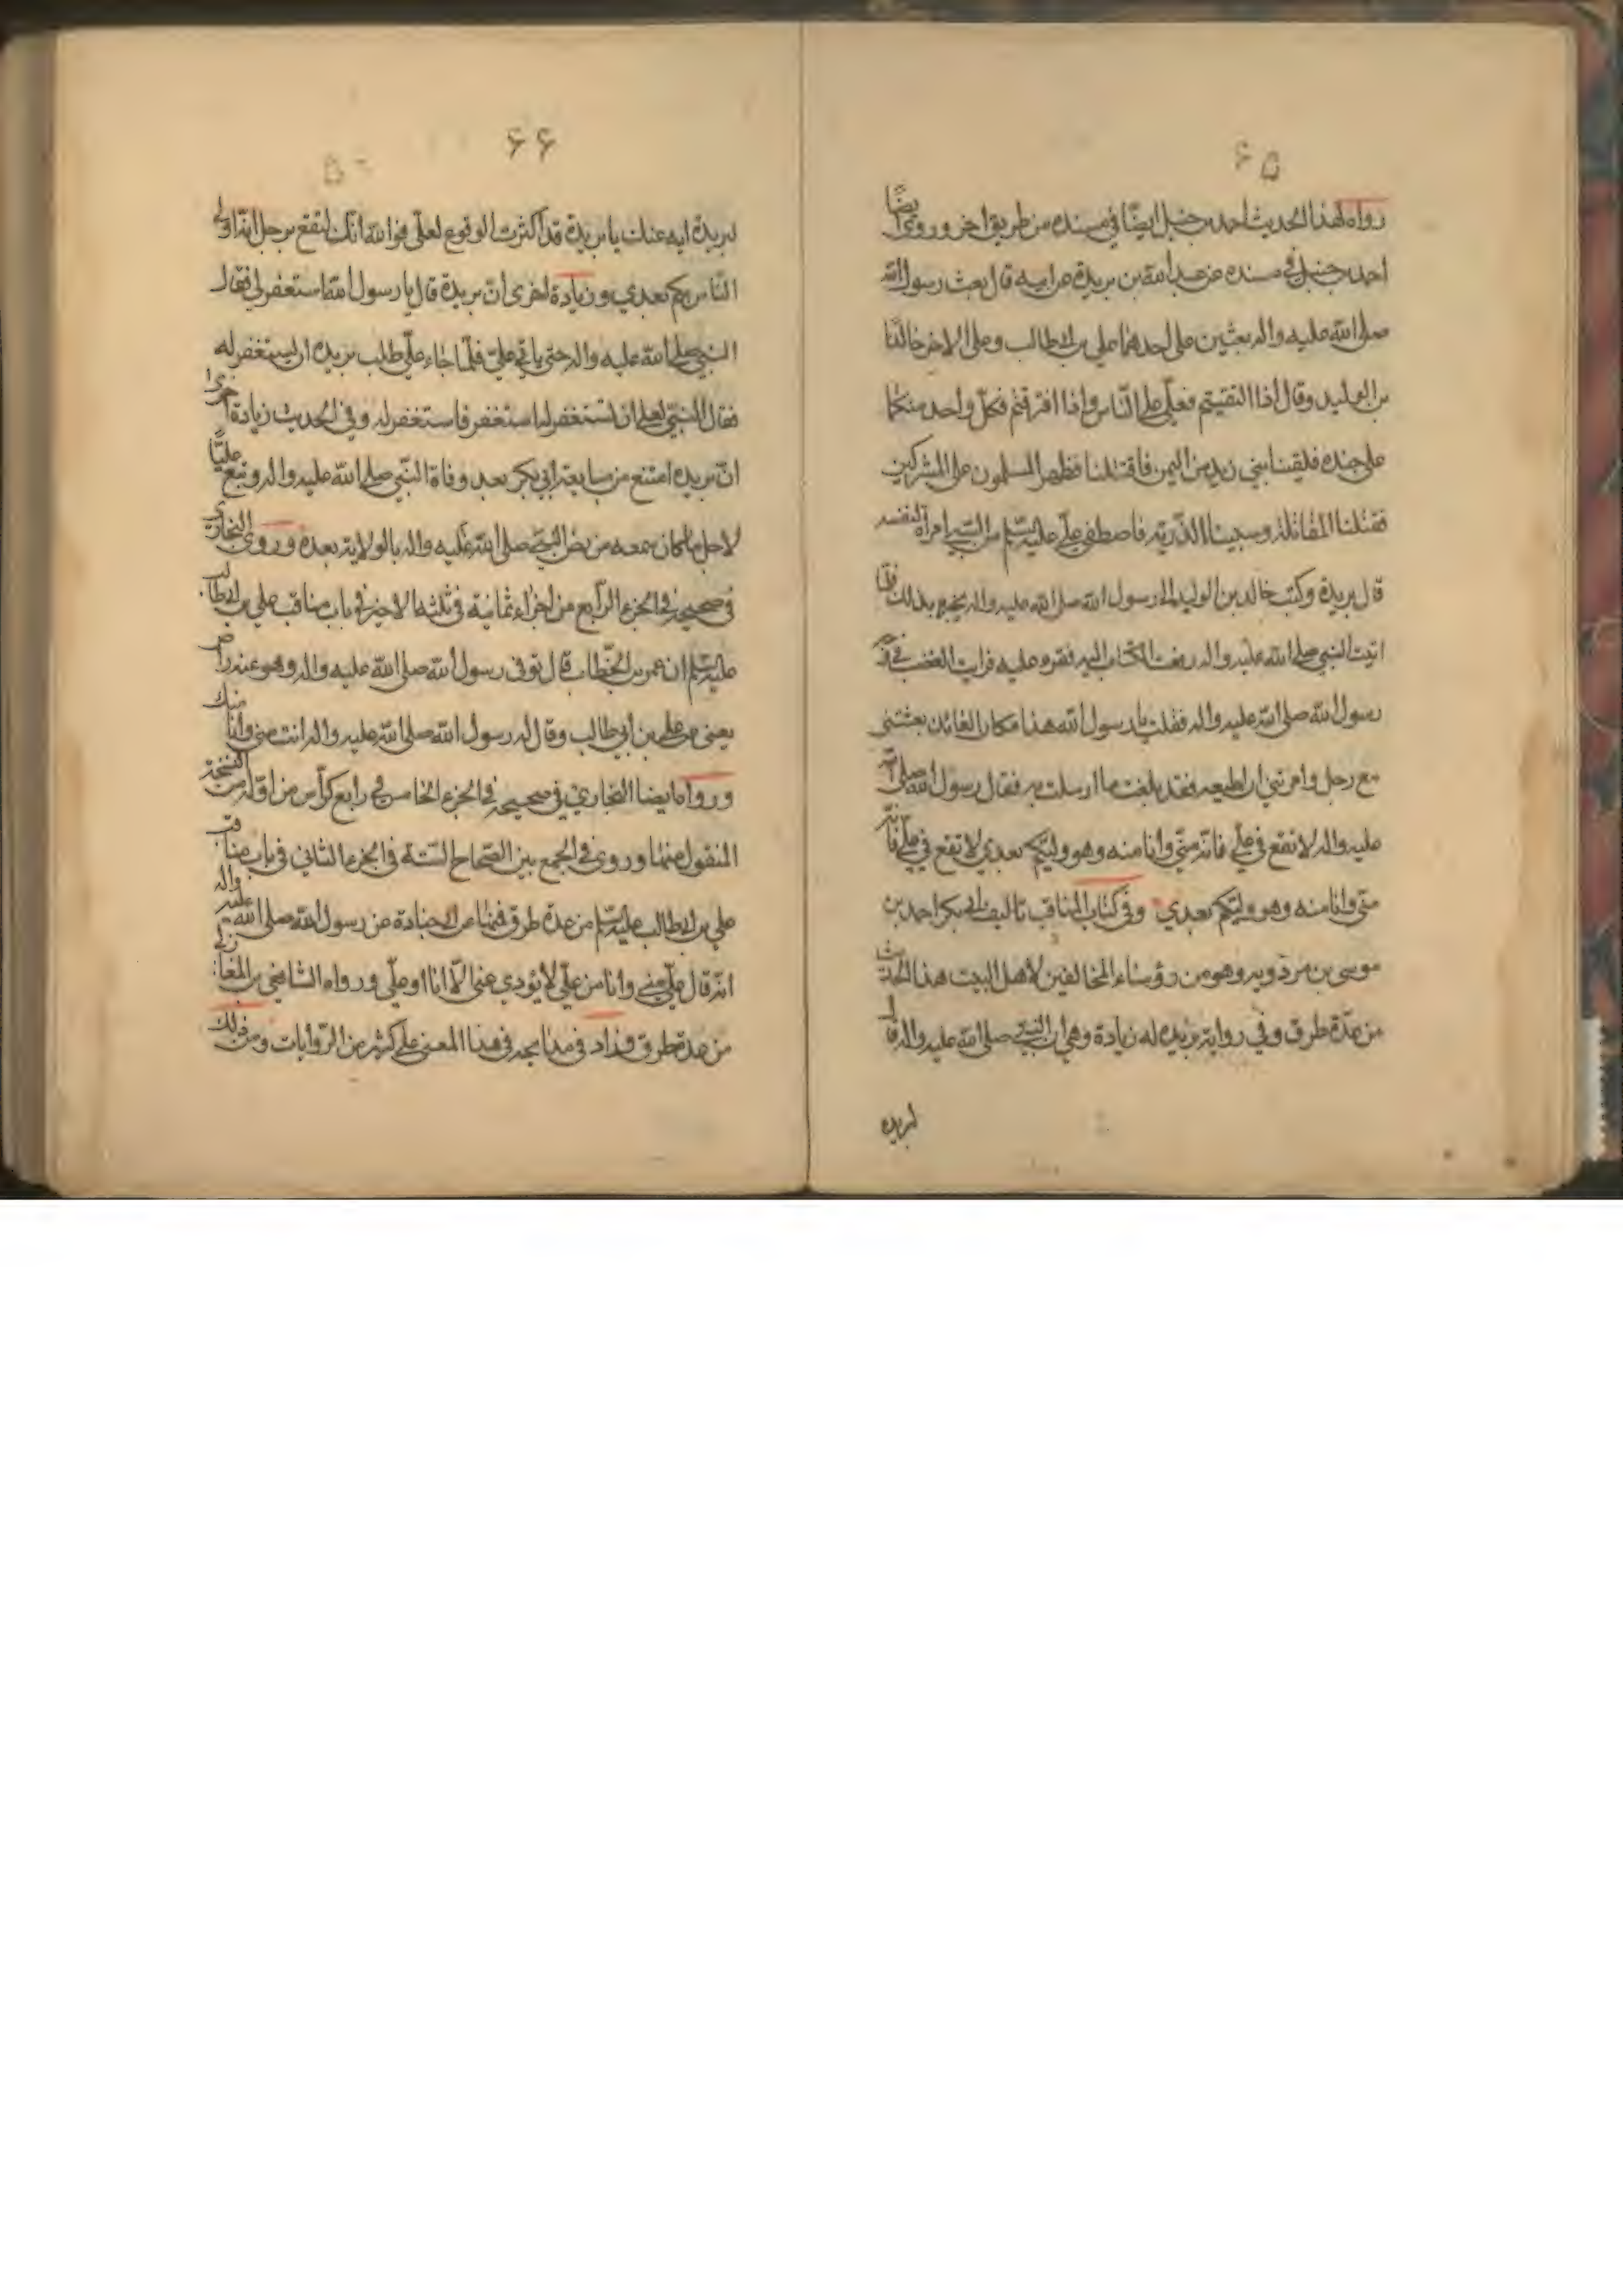 ۶۵
رواه لهذا الحديث احمد بن حنبل ايضا في مسنده من طريق اخر وروى ايضا
احمد بن حنبل في مسنده عن عبد الله بن بريدة عن ابيه قال بعث رسول الله
صلى الله عليه واله بعثين على احدهما علي بن ابيطالب وعلى الاخر خالد
بن الوليد وقال اذا التقيتم فعلي على الناس واذا افترقتم فكل واحد منكما
على جنده فلقينا بني زيد من اليمن فاقتتلنا فظهر المسلمون على المشركين
فقتلنا المقاتلة وسبينا الذرية فاصطفى علي عليه السلم من السبي امراة لنفسه
قال بريدة وكتب خالد بن الوليد الى رسول الله صلى الله عليه واله يخبره بذلك فلما
اتيت النبي صلى الله عليه واله دفعت الكتاب اليه فقره عليه فرايت الغضب في وجه
رسول الله صلى الله عليه واله فقلت يا رسول الله هذا مكان العائذ بعثتني
مع رجل وامرتني ان اطيعه فقد بلغت ما ارسلت به فقال رسول الله صلى الله
عليه واله لا تقع في علي فانه مني وانا منه وهو وليكم بعدي لا تقع في علي فانه
مني وانا منه وهو وليكم بعدي وفي كتاب المناقب تاليف ابي بكر احمد بن
موسى بن مردويه وهو من رؤساء المخالفين لاهل البيت هذا الحديث
من عدة طرق وفي رواية بريدة له زيادة وهي ان النبي صلى الله عليه واله قال
لبريده
۶۶
لبريدة ايه عنك يا بريدة قد اكثرت الوقوع لعلي فوالله انك لتقع برجل انه اولى
الناس بكم بعدي وزيادة اخرى ان بريدة قال يا رسول الله استغفر لي فقال
النبي صلى الله عليه واله حتى ياتي علي فلما جاء علي طلب بريده ان يستغفر له
فقال النبي لعلي ان تستغفر له استغفر فاستغفر له وفي الحديث زيادة اخرى
ان بريده امتنع من مبايعة ابي بكر بعد وفاة النبي صلى الله عليه واله وتبع عليا
لاجل ما كان سمعه من نص النبي صلى الله عليه واله بالولاية بعده وروى البخاري
في صحيحه في الجزء الرابع من اجزاء ثمانية في ثلثه الاخير في باب مناقب علي بن ابيطالب
عليه السلم ان عمر بن الخطاب قال توفي رسول الله صلى الله عليه واله وهو عنه راض
يعني عن علي بن ابي طالب وقال له رسول الله صلى الله عليه واله انت مني وانا منك
ورواه ايضا البخاري في صحيحه في الجزء الخامس في رابع كراس من اوله من النسخة
المنقول منها وروى في الجمع بين الصحاح الستة في الجزء الثاني في باب مناقب
علي بن ابيطالب عليه السلم من عدة طرق فمنها عن ابي جنادة عن رسول الله صلى الله عليه واله
انه قال علي مني وانا من علي لا يؤدي عني الا انا او علي ورواه الشافعي بن المغازلي
من عدة طرق وزاد في مدايحه في هذا المعنى على كثير من الروايات ومن ذلك